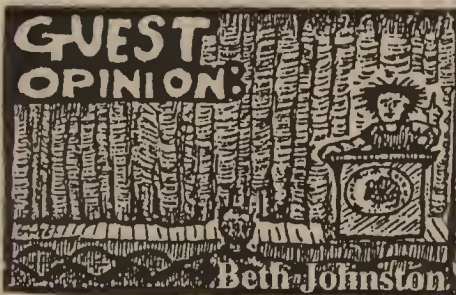 GUEST
OPINION:
Beth Johnston